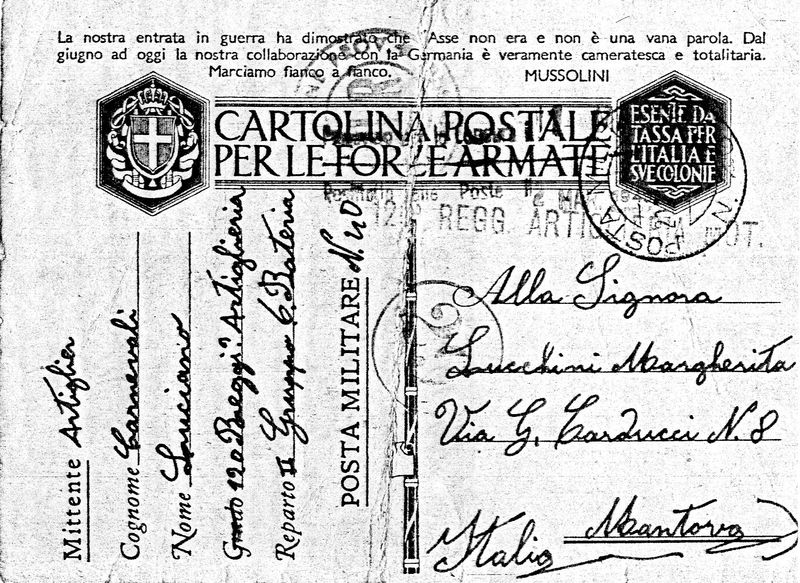 La nostra entrata in guerra ha dimostrato che l'Asse non era e non è una vana parola. Dal
giugno ad oggi la nostra collaborazione con la Germania è veramente cameratesca e totalitaria.
Marciamo fianco a fianco. MUSSOLINI
CARTOLINA POSTALE
PER LE FORZE ARMATE
ESENTE DA
TASSA PER
L'ITALIA E
SUE COLONIE
Poste
REGG. ARTIGLIERIA MOT.
POSTA
Mittente Artiglier
Cognome Carnevali
Nome Luciano
Grado 120 Regg. Artiglieria
Reparto II Gruppo 6. Bateria
POSTA MILITARE N. 40
2
Alla Signora
Lucchini Margherita
Via G. Carducci N. 8
Mantova
Italia